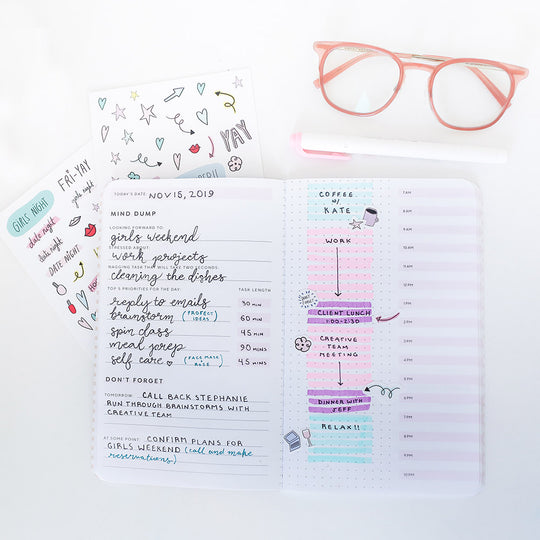 YAY
FRI-YAY
girls night
GIRLS NIGHT
date night
date night
DATE NIGHT
TODAY'S DATE: NOV 15, 2019
MIND DUMP
LOOKING FORWARD TO:
girls weekend
STRESSED ABOUT:
work projects
NAGGING TASK THAT WILL TAKE TWO SECONDS:
cleaning the dishes
TOP 5 PRIORITIES FOR THE DAY: TASK LENGTH
reply to emails 30 MIN
brainstorm (PROJECT IDEAS) 60 MIN
spin class 45 MIN
meal prep 90 MINS
self care (FACE MASK & ROSÉ) 45 MINS
DON'T FORGET
TOMORROW: CALL BACK STEPHANIE
RUN THROUGH BRAINSTORMS WITH
CREATIVE TEAM
AT SOME POINT: CONFIRM PLANS FOR
GIRLS WEEKEND (call and make
reservations)
COFFEE
w/
KATE
WORK
CLIENT LUNCH
1:00-2:30
CREATIVE
TEAM
MEETING
DINNER WITH
JEFF
RELAX!!
7 AM
8 AM
9 AM
10 AM
11 AM
12 PM
1 PM
2 PM
3 PM
4 PM
5 PM
6 PM
7 PM
8 PM
9 PM
10 PM